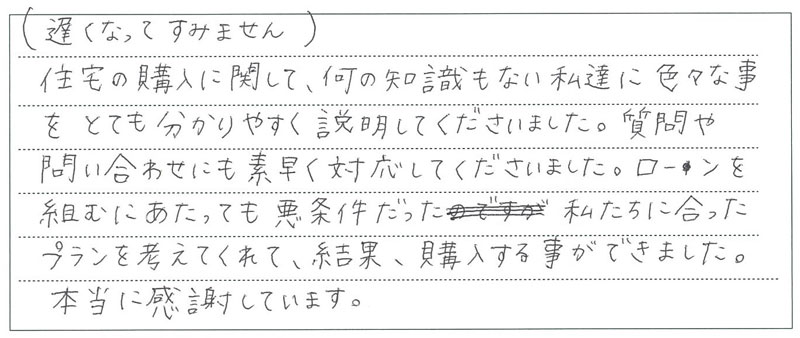 (遅くなってすみません)
住宅の購入に関して、何の知識もない私達に色々な事
をとても分かりやすく説明してくださいました。質問や
問い合わせにも素早く対応してくださいました。ローンを
組むにあたっても悪条件だったのですが私たちに合った
プランを考えてくれて、結果、購入する事ができました。
本当に感謝しています。